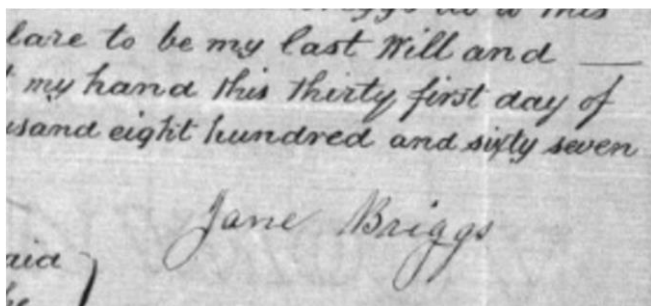 to this
lare to be my last Will and —
my hand this thirty first day of
usand eight hundred and sixty seven
Jane Briggs
aid
he